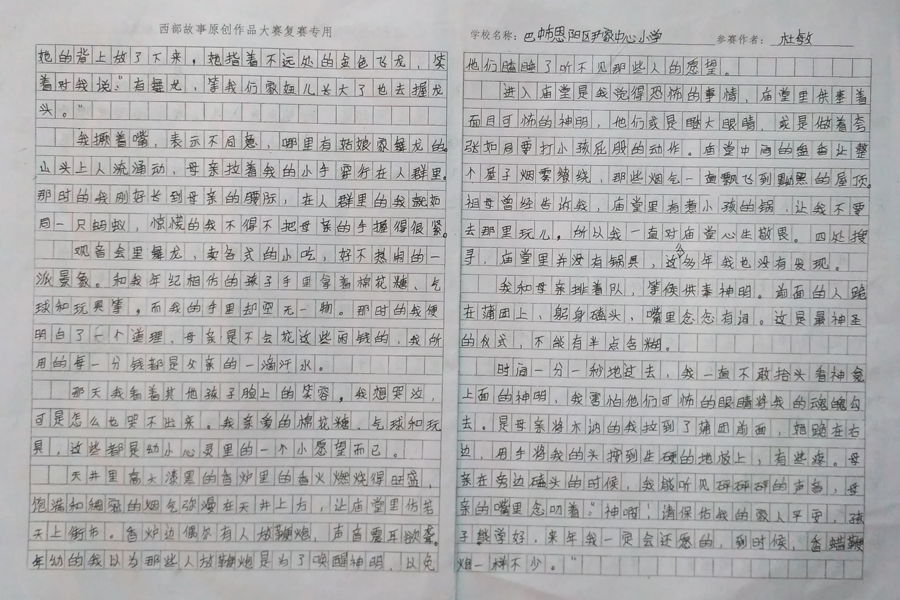 西部故事原创作品大赛复赛专用
她的背上放了下来，她指着不远处的金色飞龙，笑
着对我说：“有舞龙，等我们家妞儿长大了也去握龙
头。”
我撅着嘴，表示不同意，哪里有姑娘家舞龙的。
山头上人流涌动，母亲拉着我的小手穿行在人群里。
那时的我刚好长到母亲的腰际，在人群里的我就如
同一只蚂蚁，惊慌的我不得不把母亲的手握得很紧。
观音会里舞龙，卖各式的小吃，好不热闹的一
派景象。和我年纪相仿的孩子手里拿着棉花糖、气
球和玩具等。而我的手里却空无一物。那时的我便
明白了一个道理，母亲是不会花这些闲钱的，我所
用的每一分钱都是父亲的一滴汗水。
那天我看着其他孩子脸上的笑容，我想哭泣，
可是怎么也哭不出来。我亲爱的棉花糖、气球和玩
具，这些都是幼小心灵里的一个小愿望而已。
天井里高大漆黑的香炉里的香火燃烧得旺盛，
饱满和绸密的烟气弥漫在天井上方，让庙堂里仿若
天上街市。香炉边偶尔有人放鞭炮，声音震耳欲聋。
年幼的我以为那些人放鞭炮是为了唤醒神明，以免
学校名称：巴中市恩阳区尹家中心小学 参赛作者：杜敏
他们瞌睡了听不见那些人的愿望。
进入庙堂是我觉得恐怖的事情，庙堂里供奉着
面目可怖的神明，他们或是瞪大眼睛，或是做着夸
张如同要打小孩屁股的动作。庙堂中间的金鱼让整
个屋子烟雾缭绕，那些烟气一直飘飞到黝黑的屋顶。
祖母曾经告诉我，庙堂里有煮小孩的锅，让我不要
去那里玩儿，所以我一直对庙堂心生敬畏。四处搜
寻，庙堂里并没有锅具，这么多年我也没有发现。
我和母亲排着队，等候供奉神明。前面的人跪
在蒲团上，躬身磕头，嘴里念念有词。这是最神圣
的仪式，不能有半点含糊。
时间一分一秒地过去，我一直不敢抬头看神龛
上面的神明，我害怕他们可怖的眼睛将我的魂魄勾
去。是母亲将木讷的我拉到了蒲团前面，她跪在右
边，用手将我的头按到生硬的地板上，有些疼。母
亲在旁边磕头的时候，我能听见砰砰砰的声音，母
亲的嘴里念叨着：“神啊！请保佑我的家人平安，孩
子能学好，来年我一定会还愿的，到时候，香蜡鞭
炮一样不少。”